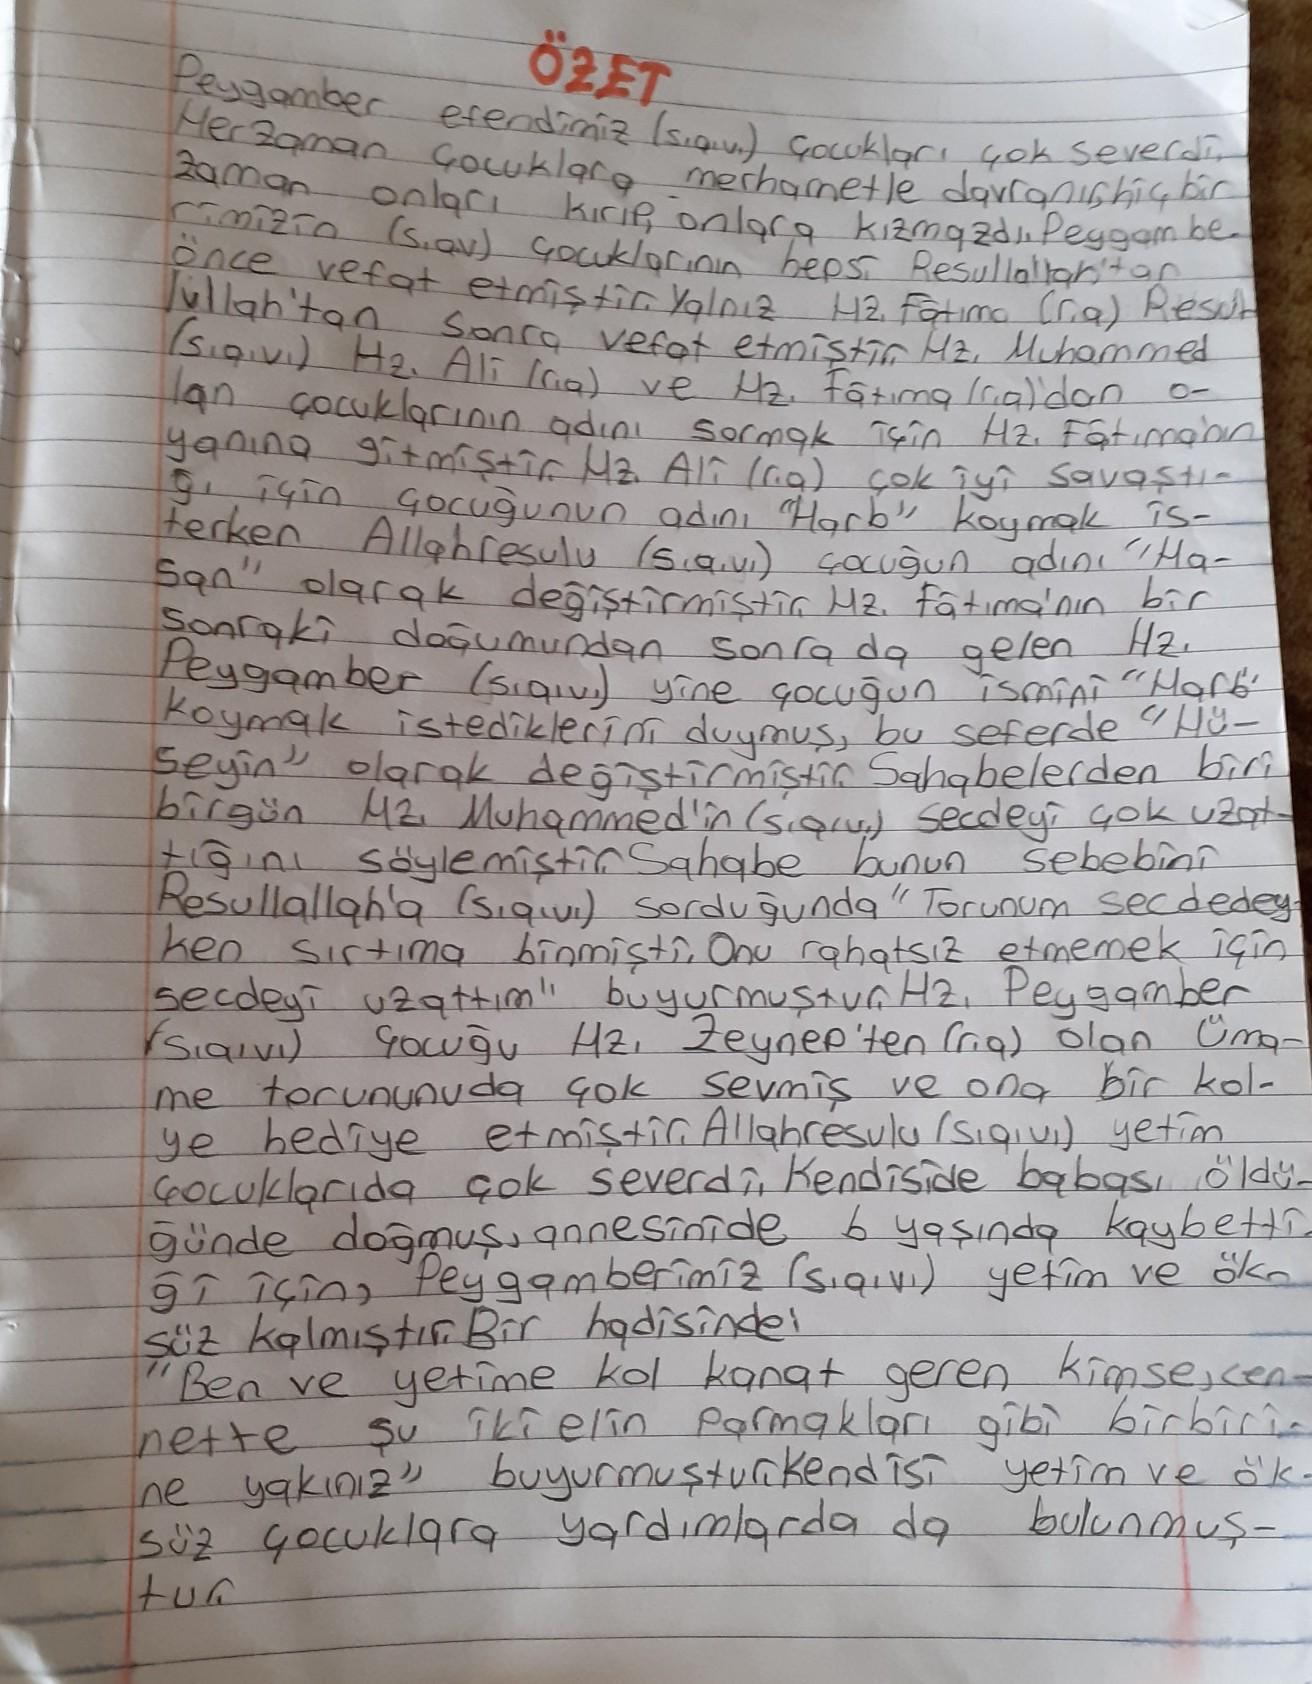 ÖZET
Peygamber efendimiz (s.a.v.) çocukları çok severdi.
Herzaman çocuklara merhametle davranış, hiç bir
zaman onları kırıp, onlara kızmazdı. Peygambe-
rimizin (s.av) çocuklarının hepsi Resullallah'tan
önce vefat etmiştir. Yalnız Hz. Fâtıma (r.a) Resul-
lullah'tan sonra vefat etmiştir. Hz. Muhammed
(s.a.v.) Hz. Ali (r.a) ve Hz. Fâtıma (r.a)'dan o-
lan çocuklarının adını sormak için Hz. Fâtıma'nın
yanına gitmiştir. Hz. Ali (r.a) çok iyi savaştı-
ğı için çocuğunun adını "Harb" koymak is-
terken Allahresulu (s.a.v.) çocuğun adını "Ha-
san" olarak değiştirmiştir. Hz. Fâtıma'nın bir
sonraki doğumundan sonra da gelen Hz.
Peygamber (s.a.v.) yine çocuğun ismini "Harb"
koymak istediklerini duymuş, bu seferde "Hü-
seyin" olarak değiştirmiştir. Sahabelerden biri
birgün Hz. Muhammed'in (s.a.v.) secdeyi çok uzat-
tığını söylemiştir. Sahabe bunun sebebini
Resullallah'a (s.a.v.) sorduğunda "Torunum secdedey-
ken sırtıma binmişti. Onu rahatsız etmemek için
secdeyi uzattım" buyurmuştur. Hz. Peygamber
(s.a.v.) çocuğu Hz. Zeynep'ten (r.a) olan Üma-
me torununuda çok sevmiş ve ona bir kol-
ye hediye etmiştir. Allahresulu (s.a.v.) yetim
çocuklarıda çok severdi. Kendiside babası öldü-
günde doğmuş, annesinide 6 yaşında kaybetti-
ği için, Peygamberimiz (s.a.v.) yetim ve ök-
süz kalmıştır. Bir hadisinde:
"Ben ve yetime kol kanat geren kimse, cen-
nette şu iki elin parmakları gibi birbiri-
ne yakınız" buyurmuştur. Kendisi yetim ve ök-
süz çocuklara yardımlarda da bulunmuş-
tur.